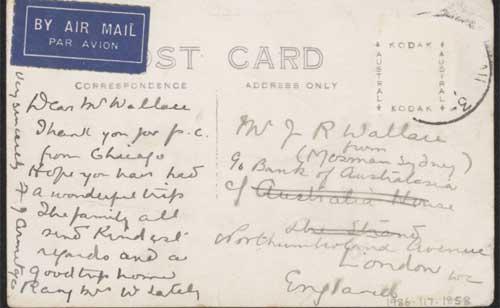 BY AIR MAIL
PAR AVION
POST CARD
CORRESPONDENCE
ADDRESS ONLY
KODAK
AUSTRAL
AUSTRAL
KODAK
Dear Mr Wallace
Thank you for p.c.
from Chicago
Hope you have had
a wonderful trip
The family all
send kindest
regards and a
good trip home
Very sincerely F J
Mr J R Wallace
from
(Mosman Sydney)
c/o Bank of Australasia
c/ Australia House
The Strand
Northumberland Avenue
London WC
England
1986.117.1958